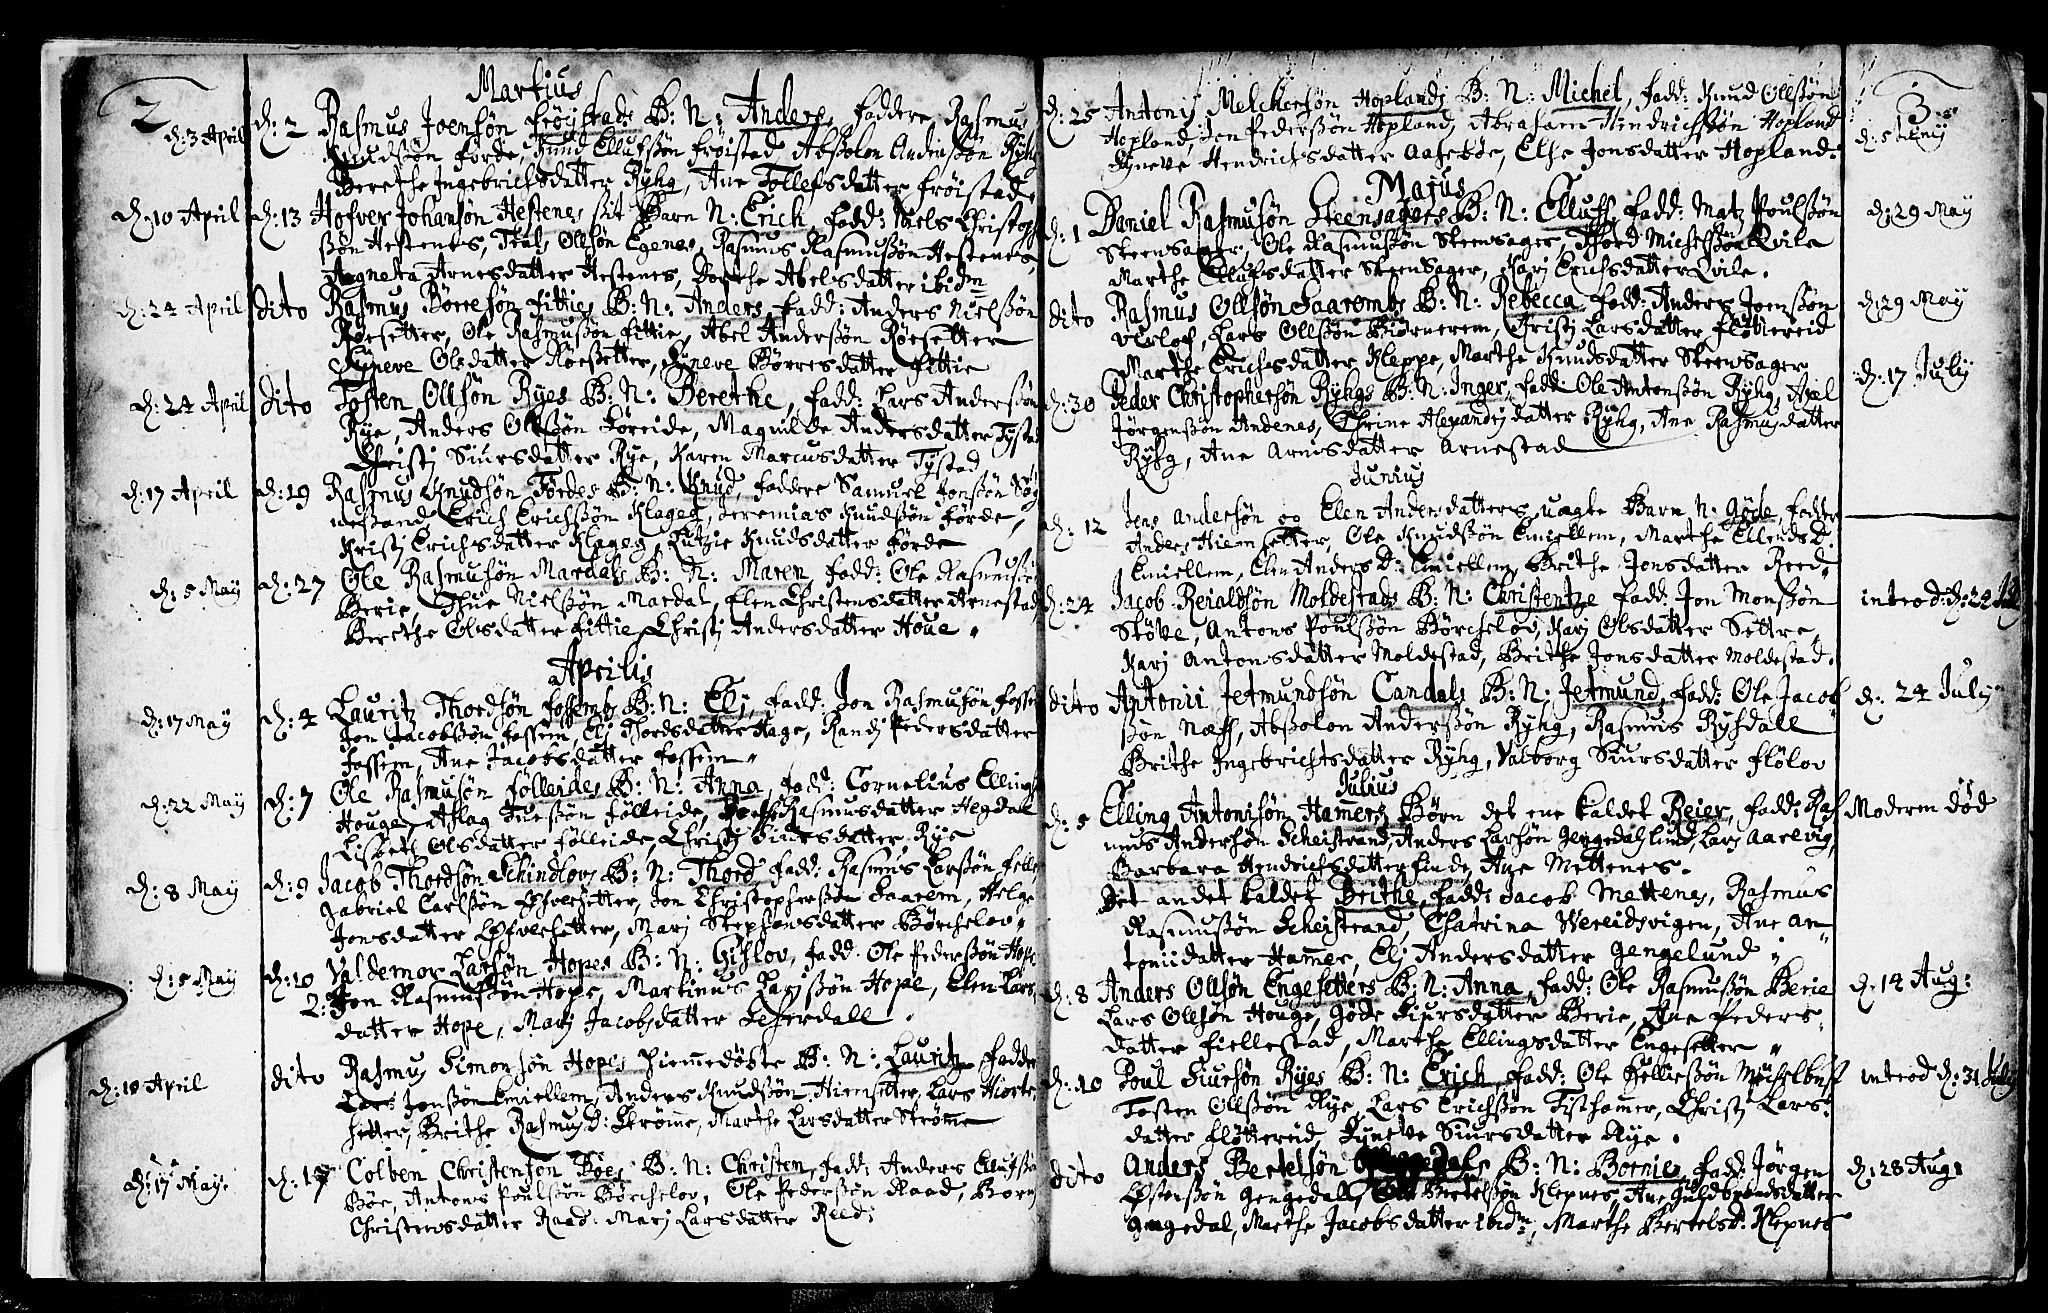 2
Martius
d: 3 April d: 2 Rasmus Joensön Fröystads B: N: Anders, Faddere, Rasmus
Knudssön Förde, Knud Ellufssön Fröistad, Absolon Anderssön Ryhg
Berethe Ingebrichsdatter Ryhg, Ane Tollefsdatter Fröistad
d: 10 April d: 13 Hofver Johansön Hestenes sit Barn N: Erich, Fadd: Niels Christoph
sön Hestenes, Ollsön Egenes, Rasmus Rasmussön Hestenes,
Agneta Arnesdatter Hestenes, Dorthe Abelsdatter ibidm
d: 24 April dito Rasmus Börresön Fitties B: N: Anders, Fadd: Anders Nielssön
Röesetter, Ole Rasmussön Fittie, Abel Anderssön Röesetter
Syneve Olsdatter Roesetter, Syneve Börresdatter Fittie
d: 24 April dito Tosten Ollsön Ryes B: N: Berethe, Fadd: Lars Anderssön
Rye, Anders Olssön Föreide, Magnilde Andersdatter Tystad
Christj Siursdatter Rye, Karen Marcusdatter Tystad
d: 17 April d: 19 Rasmus Knudsön Fördes B: N: Knud, Faddere Samuel Jonssön Sög
nesand, Erich Erichssön Klageg, Jeremias Knudssön Förde,
Kristj Erichsdatter Klageg, Lutzie Knudsdatter Förde
d: 5 May d: 27 Ole Rasmusön Mardals B: N: Maren, Fadd: Ole Rasmussön
Berie, Thue Nielssön Mardal, Elen Christensdatter Arnestad,
Berethe Olsdatter Fittie, Christj Andersdatter Houe.
Aprilis
d: 17 May d: 4 Lauritz Thordsön Fossembs B: N: Elj, Fadd: Jon Rasmusön Fossem
Jon Jacobssön Fossem, Elj Thordsdatter Hage, Randj Pedersdatter
Fossem, Ane Jacobsdatter Fossem
d: 22 May d: 7 Ole Rasmusön Fölleides B: N: Anna, Fadd: Cornelius Ellings
Houge, Aslag Tuessön Fölleide, Rasmusdatter Hegdal
Lisbeth Olsdatter Fölleide, Christj Siursdatter Rye
d: 8 May d: 9 Jacob Thordsön Schindlovs B: N: Thord Fadd: Rasmus Larssön Felle
Gabriel Carlssön Öfversetter, Jon Christopherssön Saarem, Helge
Jonsdatter Öfversetter, Marj Stephansdatter Börchelov
d: 5 May d: 10 Valdemor Larsön Hopes B: N: Gislov, Fadd: Ole Pederssön Hope
2: Jon Rasmussön Hope, Martinus Larssön Hope, Elen Lars
datter Hope, Marj Jacobsdatter Leferdall.
d: 18 April dito Rasmus Simonsön Hopes hiemmedöbte B: N: Lauritz, Fadder
Lars Jonssön Emiellem, Anders Knudssön Hiemsetter, Lars Hiorte
setter, Brithe Rasmus D: Strömme, Marthe Larsdatter Strömme
d: 17 May. d: 17 Colben Christensön Böes B: N: Christen, Fadd: Anders Ellufssön
Böe, Antons Poulssön Börchelov, Ole Pederssön Raad, Born
Christensdatter Raad, Marj Larsdatter Reed.
3
d: 25 Antonis Melchersön Hoplands B: N: Michel, Fadd: Knud Ollssön
Hopland, Jon Pederssön Hopland, Abraham Hendrichssön Hopland
Syneve Hendrichsdatter Aaseböe, Else Jonsdatter Hopland.
Majus
d: 1 Daniel Rasmusön Steensagers B: N: Elluff, Fadd: Matz Poulssön d: 29 May
Steensager, Ole Rasmussön Steensager, Thord Michelssön Qvile
Marthe Ellufsdatter Steensager, Karj Erichsdatter Qvile.
dito Rasmus Ollsön Saarembs B: N: Rebecca Fadd: Anders Joenssön d: 29 May
Lars Ollssön Biörnerem, Christj Larsdatter Flöttereid
Marthe Erichsdatter Kleppe, Marthe Knudsdatter Steensager
d: 30 Peder Christophersön Ryhgs B: N: Inger, Fadd: Ole Antonssön Ryhg, Axel d: 17 July
Jörgenssön Andenes, Thrine Alexandersdatter Ryhg, Ane Rasmusdatter
Ryhg, Ane Arnesdatter Arnestad
Junius
d: 12 Jens Andersön og Elen Andersdatters uægte Barn N: Göde, Fadder
Anders Hiemsetter, Ole Knudssön Emiellem, Marthe Ellends D:
Emiellem, Elen Anders D: Emiellem, Brithe Jonsdatter Reed
d: 24 Jacob Reialdsön Moldestads B: N: Christentze Fadd: Jon Monssön introd: d: 22 Jul
Stöve, Antons Poulssön Börchelov, Karj Olsdatter Settre,
Karj Antonsdatter Moldestad, Brithe Jonsdatter Moldestad.
dito Antonii Jetmundsön Candals B: N: Jetmund, Fadd: Ole Jacob d: 24 July
sön Næss, Absolon Anderssön Ryhg, Rasmus Rysdall
Brithe Ingebrichtsdatter Ryhg, Valborg Siursdatter Flölov
Julius
d: 5 Elling Antonisön Hamers Börn det ene kaldet Reier, Fadd: Ras Moderen död
mus Andersön Scheistrand, Anders Larsön Gengedalslund, Lars Aarevig,
Barbara Hendrichsdatter Finde, Ane Mettenes.
Det andet kaldet Brithe, Fadd: Jacob Mettenes, Rasmus
Rasmussön Scheistrand, Chatrina Wereidsvigen, Ane An
toniidatter Hamer, Elj Andersdatter Gengelund
d: 8 Anders Ollsön Engesetters B: N: Anna, Fadd: Ole Rasmussön Berie d: 14 Aug:
Lars Ollsön Houge, Göde Siursdatter Berie, Ane Peders
datter Fiellestad, Marthe Ellingsdatter Engesetter
d: 10 Poul Siursön Ryes B: N: Erich, Fadd: Ole Helliessön introd d: 31 July
Tosten Ollssön Rye, Lars Erichssön Tisthamer, Christj Lars
datter Flöttereid, Syneve Siursdatter Rye.
dito Anders Bertelsön B: N: Bornie, Fadd: Jörgen d: 28 Aug:
Gengedall, Ole Bertelssön Klepnes, Ane Guldbrandsdatter
Gengedal, Marthe Jacobsdatter ibidm, Marthe Bertelsd: Klepnes
d: 5 Juny